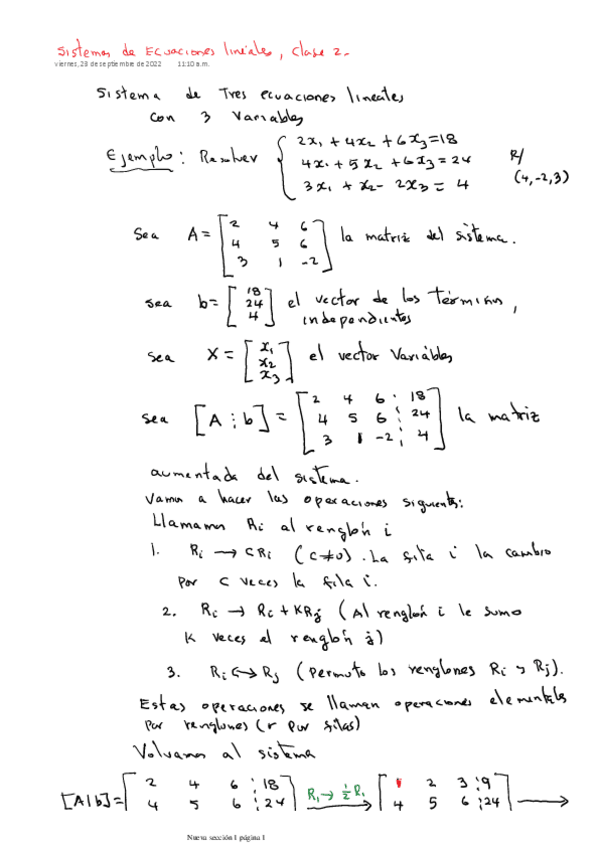 Sistemas de Ecuaciones lineales, Clase 2.
viernes, 23 de septiembre de 2022 11:10 a.m.
Sistema de Tres ecuaciones lineales
con 3 Variables
Ejemplo: Resolver { 2x₁ + 4x₂ + 6x₃ = 18
4x₁ + 5x₂ + 6x₃ = 24
3x₁ + x₂ - 2x₃ = 4
R/
(4,-2,3)
Sea A = [ 2 4 6
4 5 6
3 1 -2 ] la matriz del sistema.
sea b = [ 18
24
4 ] el vector de los términos,
independientes
sea X = [ x₁
x₂
x₃ ] el vector Variables
sea [A ⋮ b] = [ 2 4 6 ⋮ 18
4 5 6 ⋮ 24
3 1 -2 ⋮ 4 ] la matriz
aumentada del sistema.
Vamos a hacer las operaciones siguientes:
Llamamos Ri al renglón i
1. Ri → CRi (C≠0). La fila i la cambio
por C veces la fila i.
2. Ri → Ri + KRj (Al renglón i le sumo
K veces el renglón j)
3. Ri ↔ Rj (permuto los renglones Ri y Rj).
Estas operaciones se llaman operaciones elementales
por renglones (r por filas)
Volvamos al sistema
[A|b] = [ 2 4 6 ⋮ 18
4 5 6 ⋮ 24 ] R₁ → ½ R₁ [ 1 2 3 ⋮ 9
4 5 6 ⋮ 24 ] →
Nueva sección 1 página 1